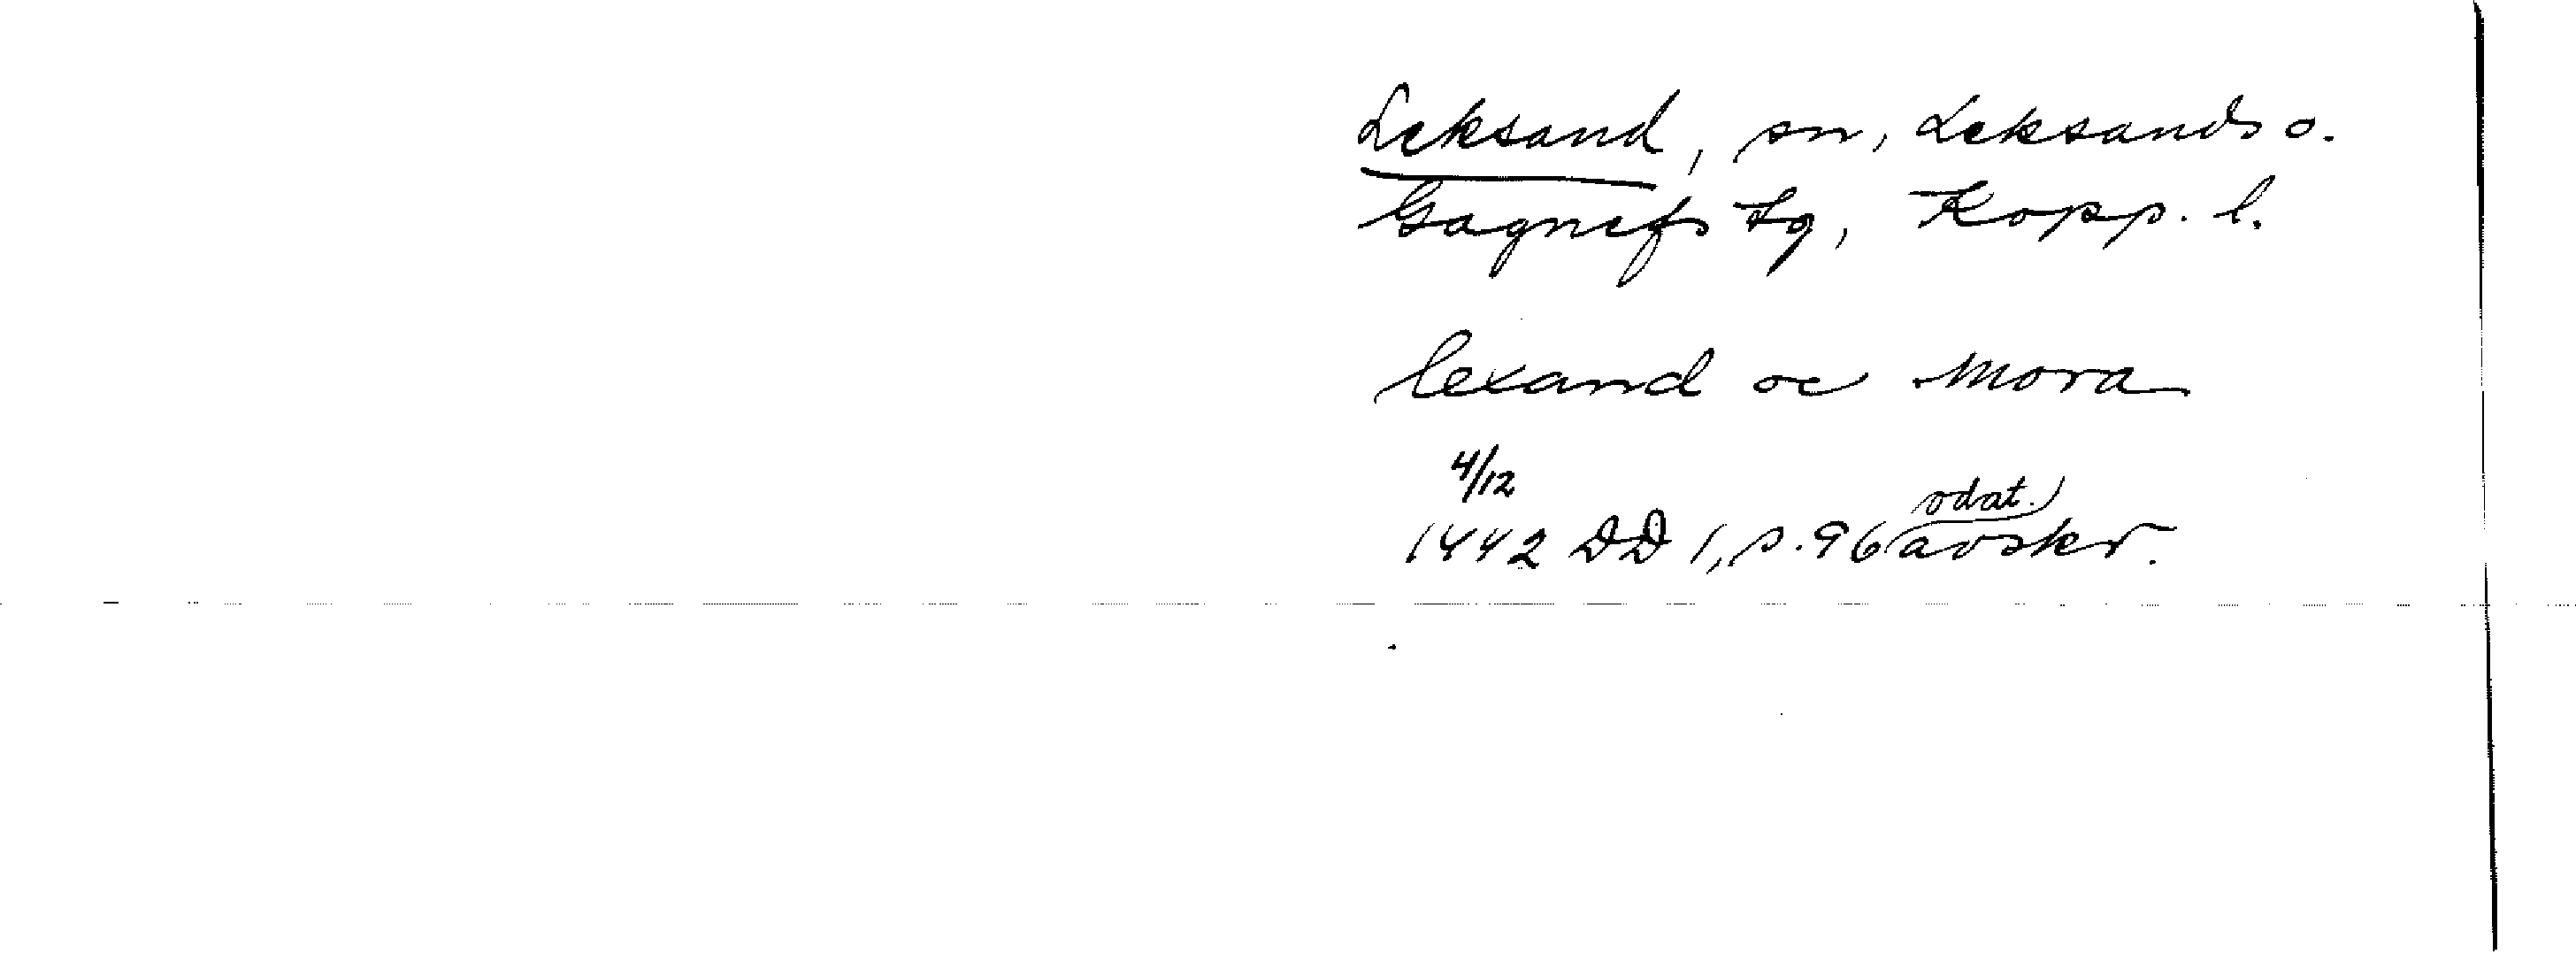 Leksand, sn, Leksands o.
Gagnefs tg, Kopp. l.
lexand oc Mora
4/12
1442 DD 1, s. 96 odat. avskr.